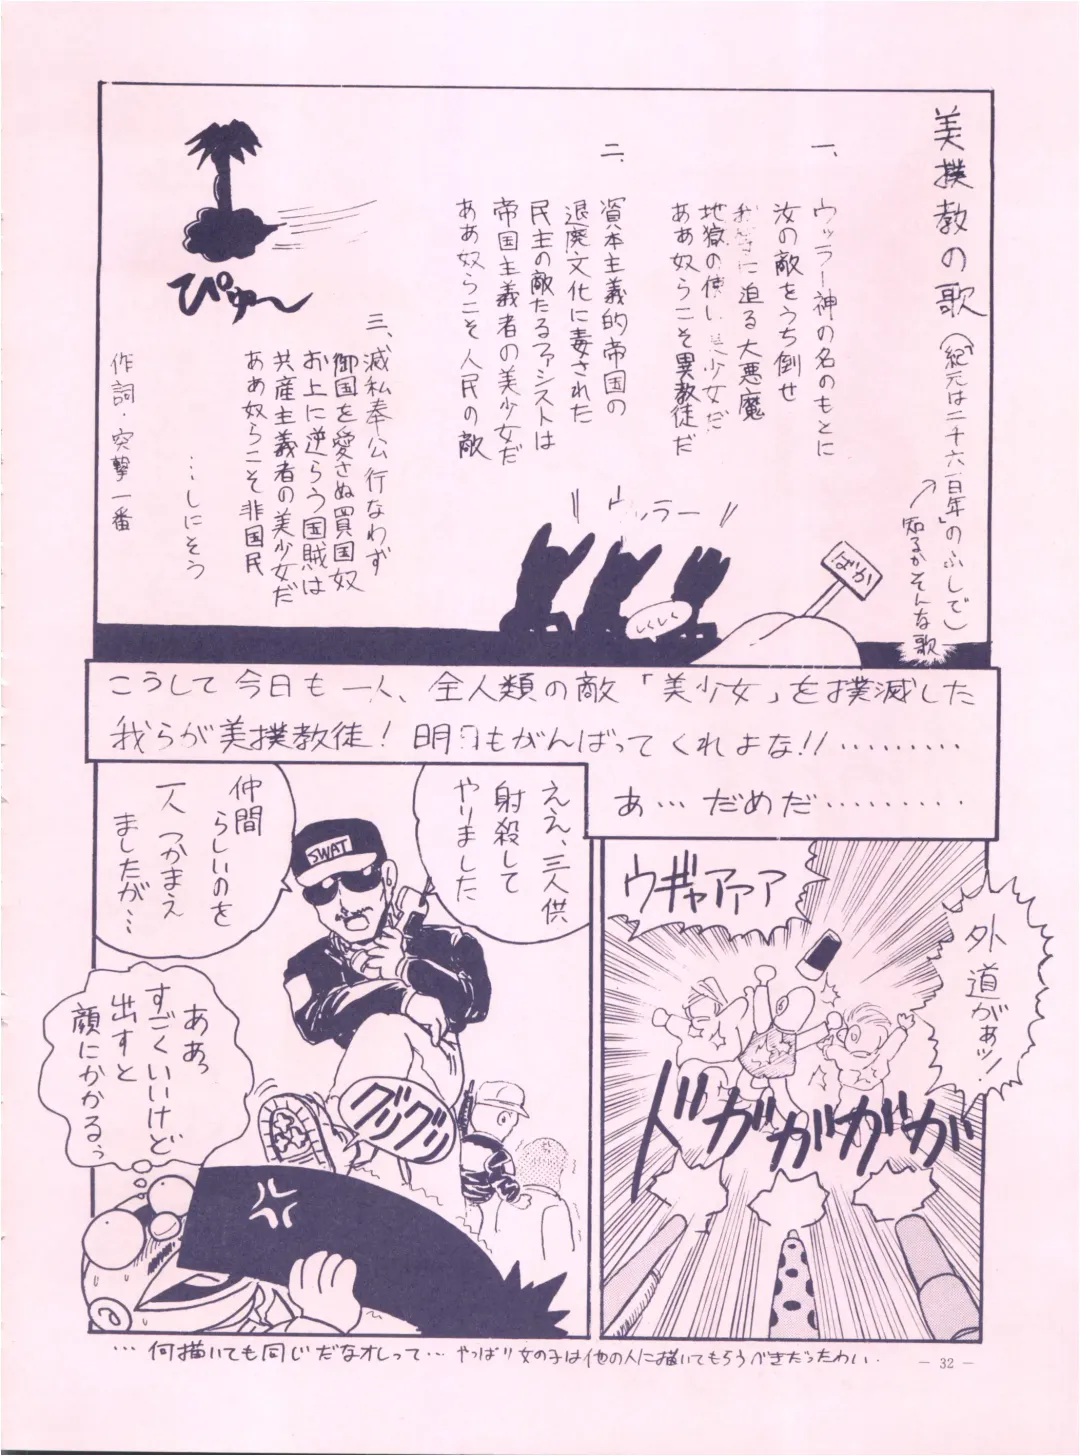 美撲教の歌 (「紀元は二千六百年」のふしで)
知るかそんな歌
一、
ウッラー神の名のもとに
汝の敵をうち倒せ
に迫る大悪魔
地獄の使い美少女だ
ああ奴らこそ異教徒だ
二、
資本主義的帝国の
退廃文化に毒された
民主の敵たるファシストは
帝国主義者の美少女だ
ああ奴らこそ人民の敵
三、
滅私奉公行なわず
御国を愛さぬ買国奴
お上に逆らう国賊は
共産主義者の美少女だ
ああ奴らこそ非国民
…しにそう
作詞・突撃一番
ぴゅ〜
ウッラー
しくしく
ばか
こうして今日も一人、全人類の敵「美少女」を撲滅した
我らが美撲教徒! 明日もがんばってくれよな!!………
あ…だめだ………
外道がぁッ!
ウギャアアア
ドガガガガ
ええ、三人供
射殺して
やりました
仲間
らしいのを
一人つかまえ
ましたが…
SWAT
グリグリ
ああっ
すごくいいけど
出すと
顔にかかるっ
…何描いても同じだなオレって…やっぱり女の子は他の人に描いてもらうべきだったわい.
— 32 —